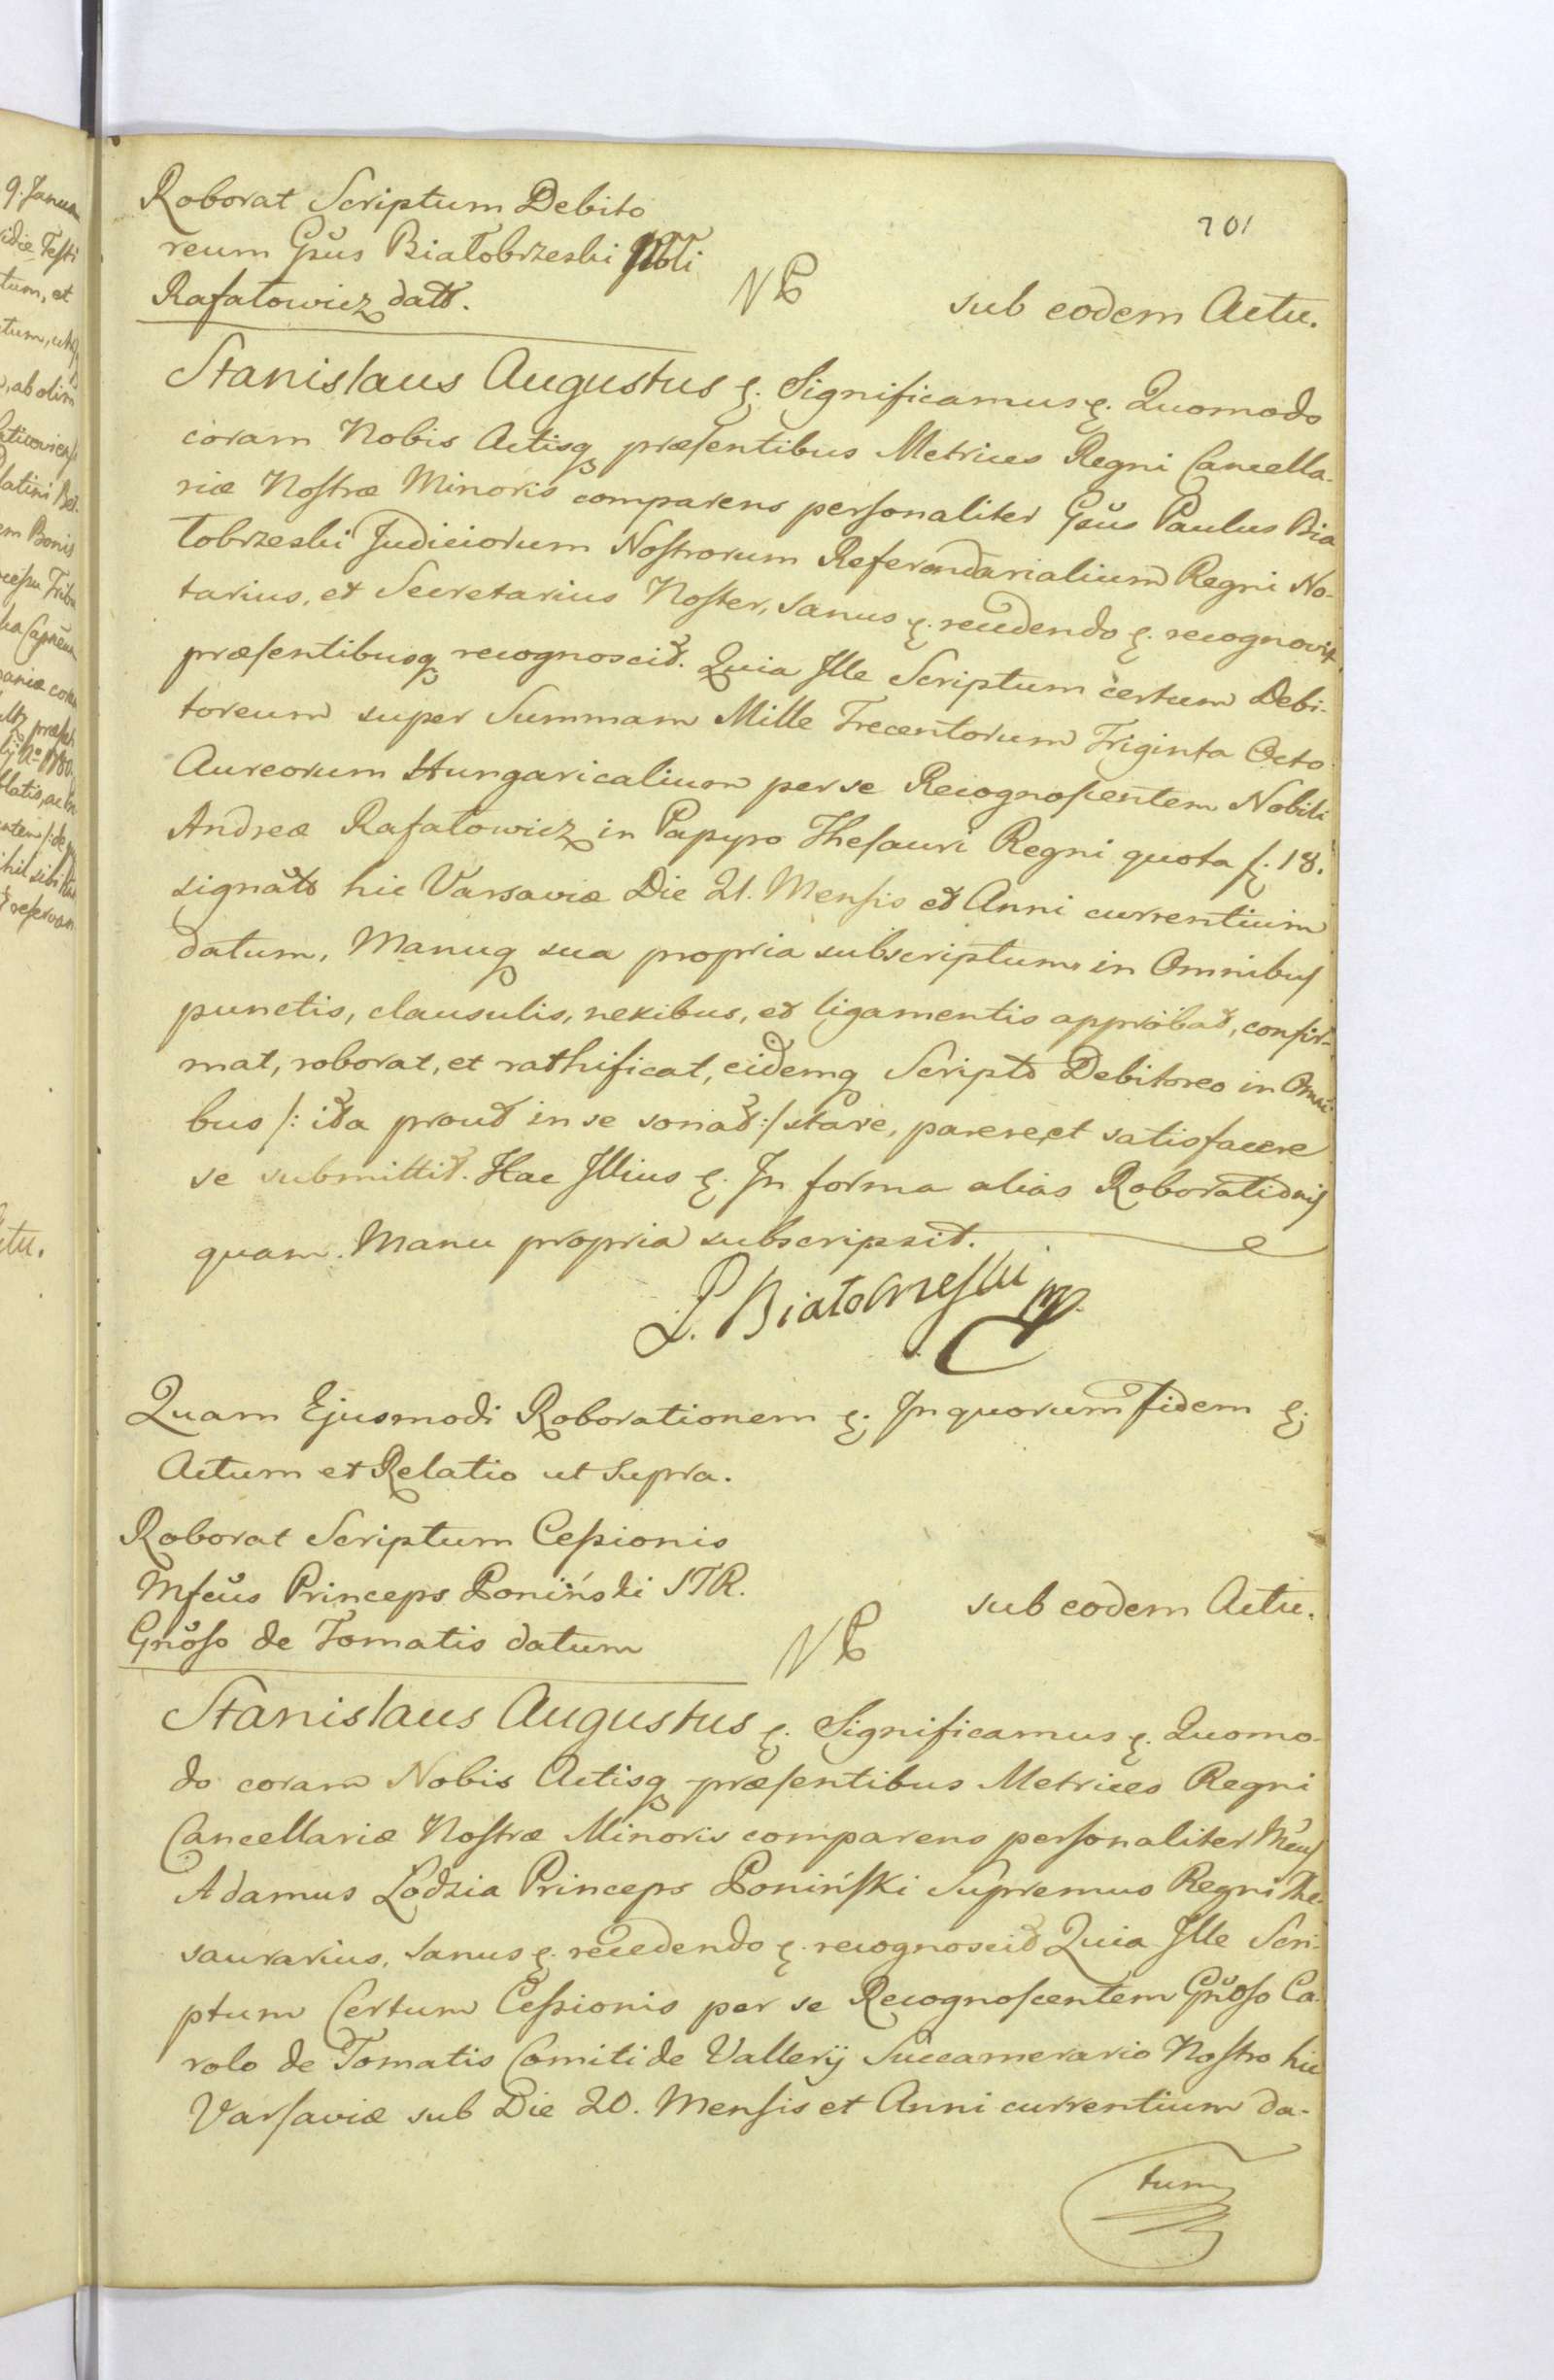 701
Roborat Scriptum Debito
reum Gsus Białobrzeski Nbli
Rafałowicz datt.
NB
sub eodem Actu.
Stanislaus Augustus &. Significamus &. Quomodo
coram Nobis Actisq præsentibus Metrices Regni Cancella-
riæ Nostræ Minoris comparens personaliter Gsus Paulus Bia
łobrzeski Judiciorum Nostrorum Referendarialium Regni No-
tarius, et Secretarius Noster, sanus &. recedendo &. recognovit
præsentibusq recognoscit. Quia Ille Scriptum certum Debi-
toreum super Summam Mille Trecentorum Triginta Octo
Aureorum Hungaricalium per se Recognoscentem Nobili
Andreæ Rafałowicz in Papyro Thesauri Regni quota f. 18.
signato hic Varsaviæ Die 21. Mensis et Anni currentium
datum, Manuq sua propria subscriptum in Omnibus
punctis, clausulis, nexibus, et ligamentis approbat, confir-
mat, roborat, et rathificat, eidemq Scripto Debitoreo in Omni
bus /: ita prout in se sonat :/ stare, parere, et satisfacere
se submittit. Hac Illius &. In forma alias Roborationis
quam Manu propria subscripsit.
P. Białobrzeski mp.
Quam Ejusmodi Roborationem &. In quorum fidem &.
Actum et Relatio ut Supra.
Roborat Scriptum Cessionis
Mfcus Princeps Poniński STR.
Gnoso de Tomatis datum
NB
sub eodem Actu.
Stanislaus Augustus &. Significamus &. Quomo-
do coram Nobis Actisq præsentibus Metrices Regni
Cancellariæ Nostræ Minoris comparens personaliter Mcus
Adamus Lodzia Princeps Poniński Supremus Regni The-
saurarius, sanus &. recedendo &. recognoscit Quia Ille Scri-
ptum Certum Cessionis per se Recognoscentem Gnoso Ca-
rolo de Tomatis Comiti de Vallerij Succamerario Nostro hic
Varsaviæ sub Die 20. Mensis et Anni currentium da-
tum